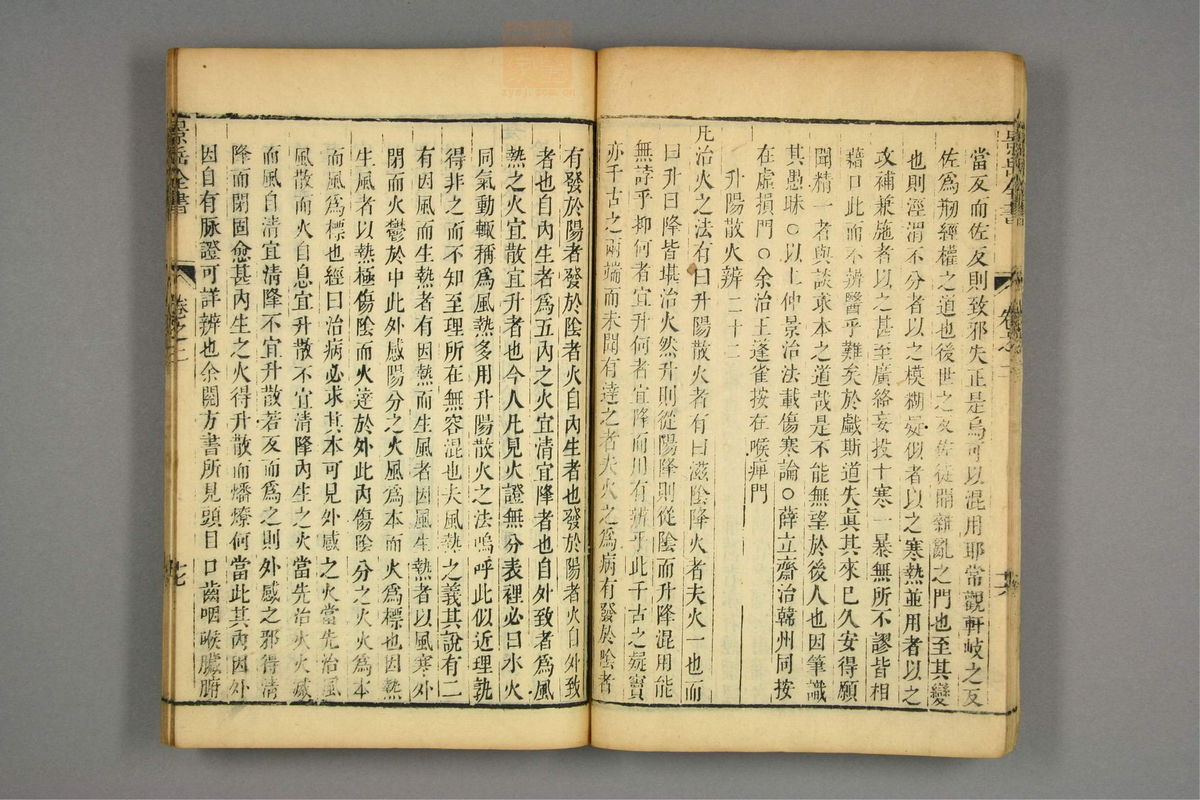 當反而佐反則致邪失正是烏可以混用耶常觀軒岐之反
佐爲刱經權之道也後世之反佐徒開雜亂之門也至其變
也則涇渭不分者以之模糊疑似者以之寒熱並用者以之
攻補兼施者以之甚至廣絡妄投十寒一暴無所不謬皆相
藉口此而不辨醫乎難矣於戲斯道失眞其來已久安得願
聞精一者與談求本之道哉是不能無望於後人也因筆識
其愚昧○以上仲景治法載傷寒論○薛立齋治韓州同按
在虛損門○余治王蓬雀按在喉痺門
升陽散火辨 二十二
凡治火之法有曰升陽散火者有曰滋陰降火者夫火一也而
曰升曰降皆堪治火然升則從陽降則從陰而升降混用能
無誖乎抑何者宜升何者宜降而用有辨乎此千古之疑實
亦千古之兩端而未聞有達之者夫火之爲病有發於陰者
有發於陽者發於陰者火自內生者也發於陽者火自外致
者也自內生者爲五內之火宜清宜降者也自外致者爲風
熱之火宜散宜升者也今人凡見火證無分表裡必曰木火
同氣動輒稱爲風熱多用升陽散火之法嗚呼此似近理孰
得非之而不知至理所在無容混也夫風熱之義其說有二
有因風而生熱者有因熱而生風者因風生熱者以風寒外
閉而火鬱於中此外感陽分之火風爲本而火爲標也因熱
生風者以熱極傷陰而火達於外此內傷陰分之火火爲本
而風爲標也經曰治病必求其本可見外感之火當先治風
風散而火自息宜升散不宜清降內生之火當先治火火滅
而風自清宜清降不宜升散若反而爲之則外感之邪得清
降而閉固愈甚內生之火得升散而燔燎何當此其內因外
因自有脉證可詳辨也余閱方書所見頭目口齒咽喉臟腑
景岳全書
卷之二
十七